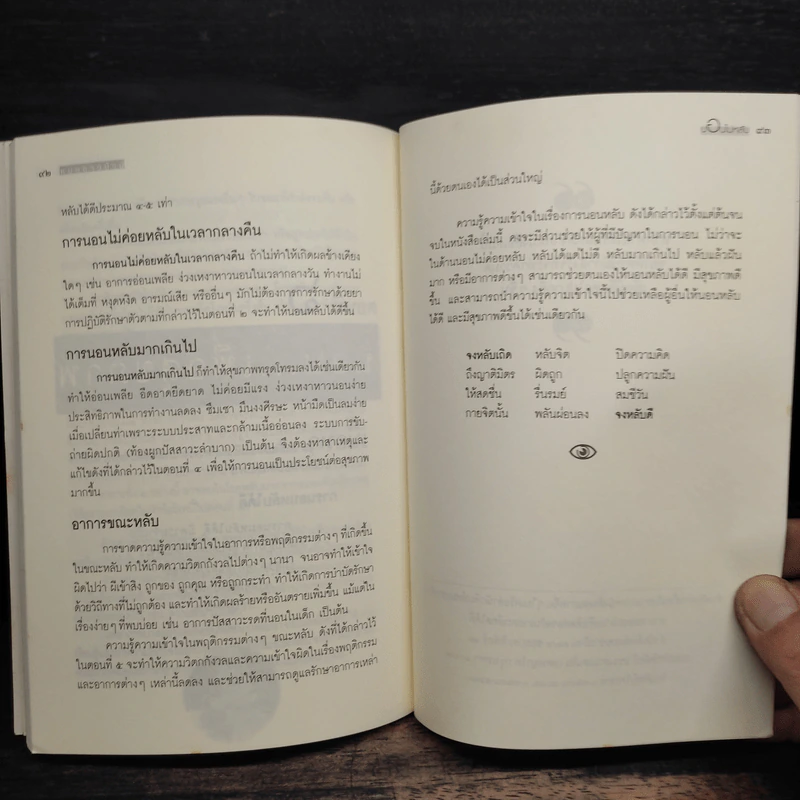 ๙๒
หลับได้ดีประมาณ ๔-๕ เท่า
การนอนไม่ค่อยหลับในเวลากลางคืน
การนอนไม่ค่อยหลับในเวลากลางคืน ถ้าไม่ทำให้เกิดผลข้างเคียง
ใดๆ เช่น อาการอ่อนเพลีย ง่วงเหงาหาวนอนในเวลากลางวัน ทำงานไม่
ได้เต็มที่ หงุดหงิด อารมณ์เสีย หรืออื่นๆ มักไม่ต้องการการรักษาด้วยยา
การปฏิบัติรักษาตัวตามที่กล่าวไว้ในตอนที่ ๒ จะทำให้นอนหลับได้ดีขึ้น
การนอนหลับมากเกินไป
การนอนหลับมากเกินไป ก็ทำให้สุขภาพทรุดโทรมลงได้เช่นเดียวกัน
ทำให้อ่อนเพลีย อืดอาดยืดยาด ไม่ค่อยมีแรง ง่วงเหงาหาวนอนง่าย
ประสิทธิภาพในการทำงานลดลง ซึมเซา มึนงงศีรษะ หน้ามืดเป็นลมง่าย
เมื่อเปลี่ยนท่าเพราะระบบประสาทและกล้ามเนื้ออ่อนลง ระบบการขับ-
ถ่ายผิดปกติ (ท้องผูกปัสสาวะลำบาก) เป็นต้น จึงต้องหาสาเหตุและ
แก้ไขดังที่ได้กล่าวไว้ในตอนที่ ๔ เพื่อให้การนอนเป็นประโยชน์ต่อสุขภาพ
มากขึ้น
อาการขณะหลับ
การขาดความรู้ความเข้าใจในอาการหรือพฤติกรรมต่างๆ ที่เกิดขึ้น
ในขณะหลับ ทำให้เกิดความวิตกกังวลไปต่างๆ นานา จนอาจทำให้เข้าใจ
ผิดไปว่า ผีเข้าสิง ถูกของ ถูกคุณ หรือถูกกระทำ ทำให้เกิดการบำบัดรักษา
ด้วยวิธีทางที่ไม่ถูกต้อง และทำให้เกิดผลร้ายหรืออันตรายเพิ่มขึ้น แม้แต่ใน
เรื่องง่ายๆ ที่พบบ่อย เช่น อาการปัสสาวะรดที่นอนในเด็ก เป็นต้น
ความรู้ความเข้าใจในพฤติกรรมต่างๆ ขณะหลับ ดังที่ได้กล่าวไว้
ในตอนที่ ๕ จะทำให้ความวิตกกังวลและความเข้าใจผิดในเรื่องพฤติกรรม
และอาการต่างๆ เหล่านี้ลดลง และช่วยให้สามารถดูแลรักษาอาการเหล่า
๙๓
นี้ด้วยตนเองได้เป็นส่วนใหญ่
ความรู้ความเข้าใจในเรื่องการนอนหลับ ดังได้กล่าวไว้ตั้งแต่ต้นจน
จบในหนังสือเล่มนี้ คงจะมีส่วนช่วยให้ผู้ที่มีปัญหาในการนอน ไม่ว่าจะ
ในด้านนอนไม่ค่อยหลับ หลับได้แต่ไม่ดี หลับมากเกินไป หลับแล้วฝัน
มาก หรือมีอาการต่างๆ สามารถช่วยตนเองให้นอนหลับได้ดี มีสุขภาพดี
ขึ้น และสามารถนำความรู้ความเข้าใจนี้ไปช่วยเหลือผู้อื่นให้นอนหลับ
ได้ดี และมีสุขภาพดีขึ้นได้เช่นเดียวกัน
จงหลับเถิด หลับจิต ปิดความคิด
ถึงญาติมิตร ผิดถูก ปลูกความฝัน
ให้สดชื่น รื่นรมย์ ลมชีวัน
กายจิตนั้น พลันผ่อนลง จงหลับดี